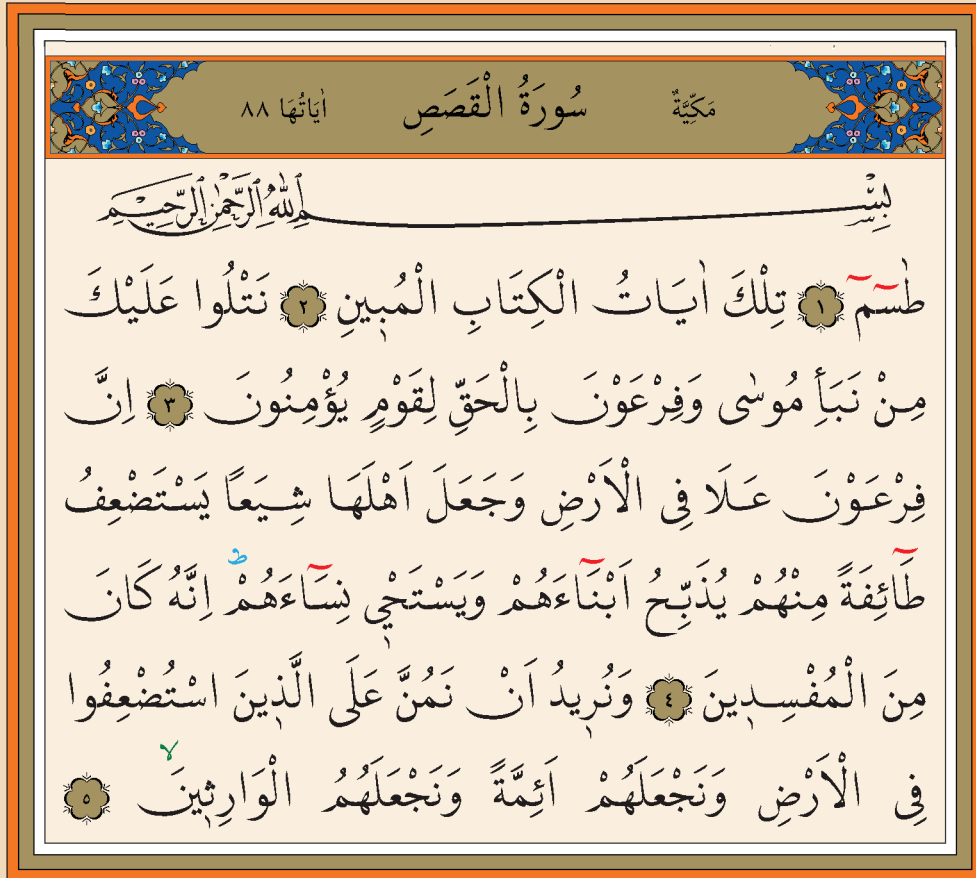 مَكِّيَّةٌ سُورَةُ الْقَصَصِ اٰيَاتُهَا ٨٨
بِسْمِ اللّٰهِ الرَّحْمٰنِ الرَّحِيمِ
طٰسٓمٓ ١ تِلْكَ اٰيَاتُ الْكِتَابِ الْمُبٖينِ ٢ نَتْلُوا عَلَيْكَ
مِنْ نَبَأِ مُوسٰى وَفِرْعَوْنَ بِالْحَقِّ لِقَوْمٍ يُؤْمِنُونَ ٣ اِنَّ
فِرْعَوْنَ عَلَا فِى الْاَرْضِ وَجَعَلَ اَهْلَهَا شِيَعًا يَسْتَضْعِفُ
طَٓائِفَةً مِنْهُمْ يُذَبِّحُ اَبْنَٓاءَهُمْ وَيَسْتَحْيٖ نِسَٓاءَهُمْؕ اِنَّهُ كَانَ
مِنَ الْمُفْسِدٖينَ ٤ وَنُرٖيدُ اَنْ نَمُنَّ عَلَى الَّذٖينَ اسْتُضْعِفُوا
فِى الْاَرْضِ وَنَجْعَلَهُمْ اَئِمَّةً وَنَجْعَلَهُمُ الْوَارِثٖينَۙ ٥